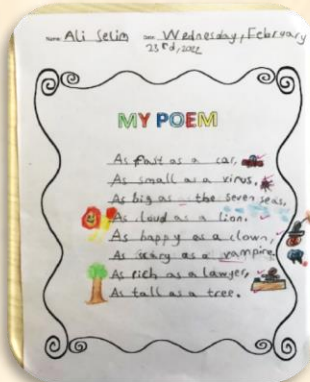 Name: Ali Selim Date: Wednesday, February
23rd, 2022
MY POEM
As fast as a car,
As small as a virus,
As big as the seven seas,
As loud as a lion.
As happy as a clown,
As scary as a vampire
As rich as a lawyer,
As tall as a tree.